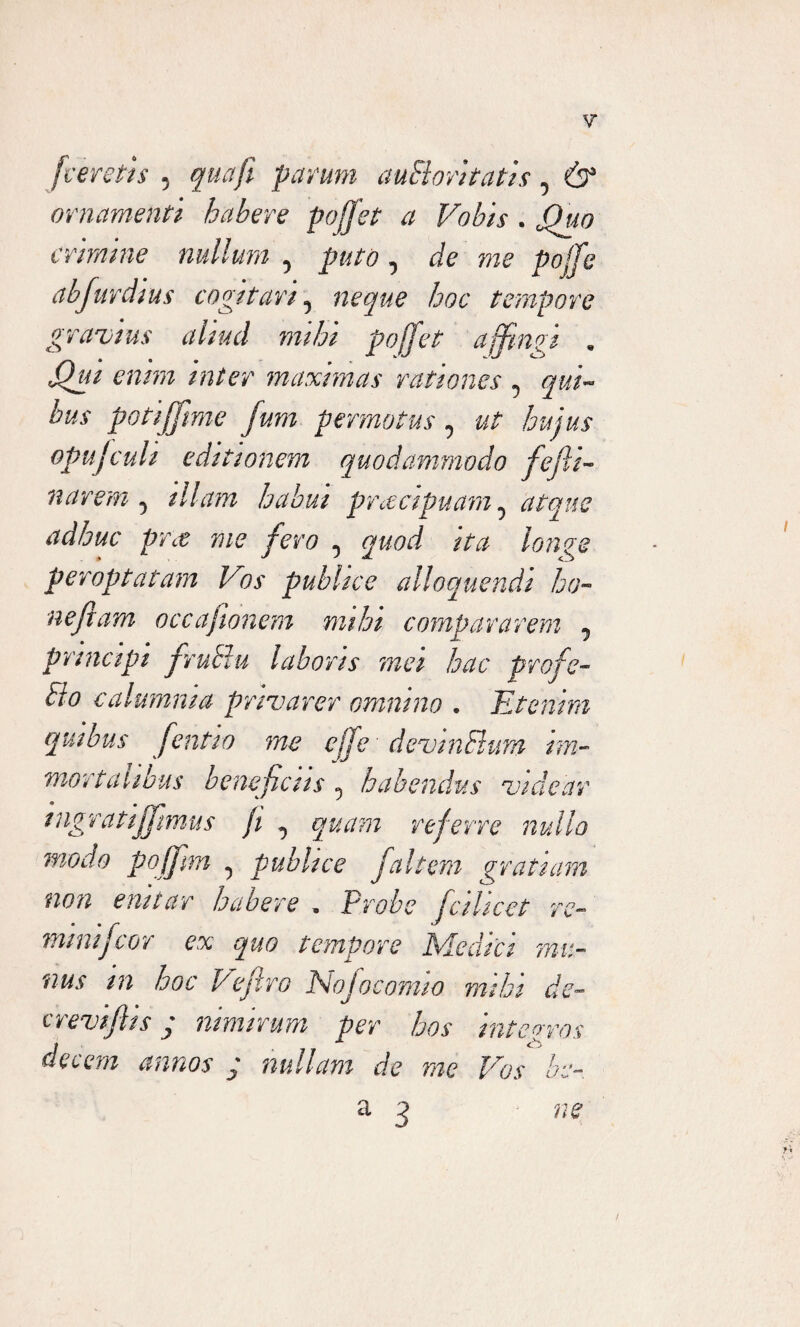 v
ſceretis , quaſi parum auctoritatis , &
ornamenti habere poſſet a Vobis . Quo
crimine nullum , puto , de me poſſe
abſurdius cogitari , neque hoc tempore
gravius aliud mihi poſſet affingi .
Qui enim inter maximas rationes , qui-
bus potiſſime ſum permotus , ut hujus
opuſculi editionem quodammodo feſti-
narem , illam habui præcipuam , atque
adhuc præ me fero , quod ita longe
peroptatam Vos publice alloquendi ho-
neſtam occaſionem mihi compararem ,
principi fructu laboris mei hac profe-
cto calumnia privarer omnino . Etenim
quibus ſentio me eſſe devinctum im-
mortalibus beneficiis , habendus videar
ingratiſſimus ſi , quam referre nullo
modo poſſim , publice ſaltem gratiam
non enitar habere . Probe ſcilicet re-
miniſcor ex quo tempore Medici mu-
nus in hoc Veſtro Noſocomio mihi de-
creviſtis ; nimirum per hos integros
decem annos ; nullam de me Vos be-
a 3 ne